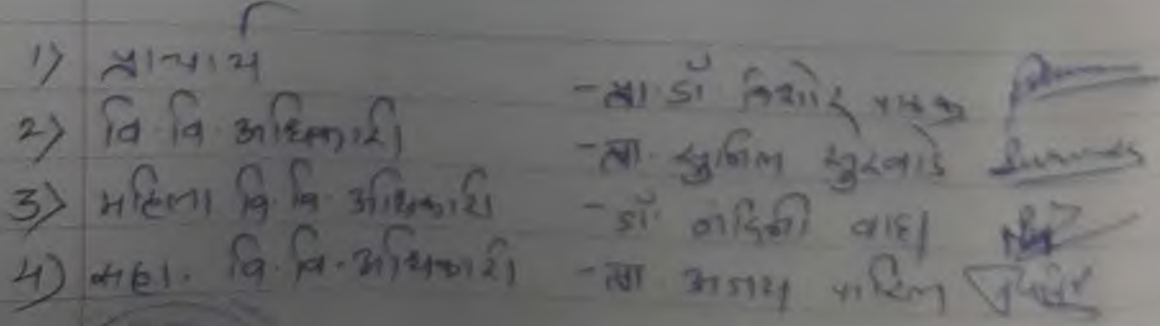 1) प्राचार्य - प्रा. डॉ. किशोर पाठक
2) वि. वि. अधिकारी - प्रा. सुनिल सुरवाडे
3) महिला वि. वि. अधिकारी - डॉ. नंदिनी वाघ
4) सहा. वि. वि. अधिकारी - प्रा. अजय पाटिल